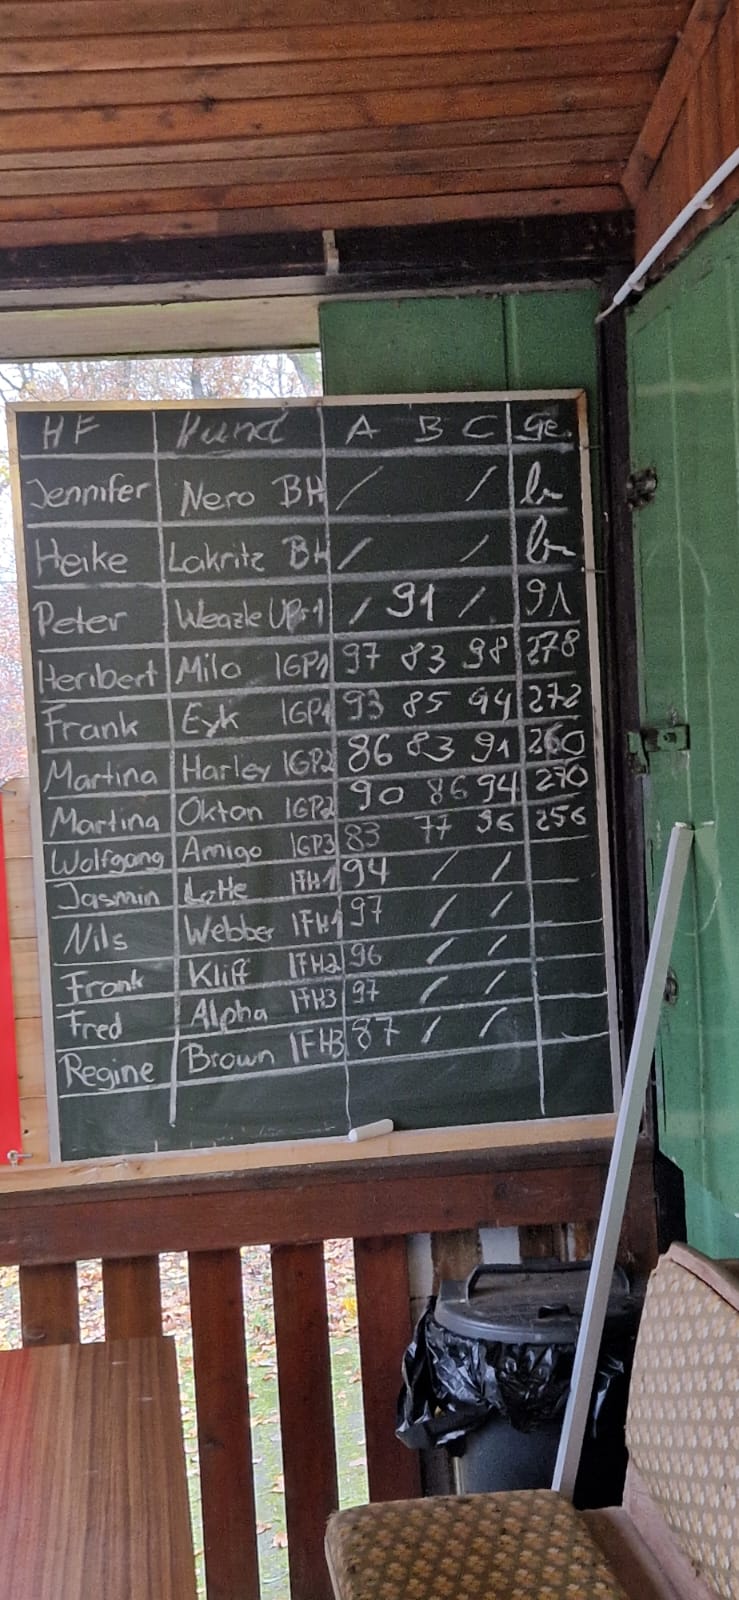 HF Hund A B C Ge.
Jennifer Nero BH / / b
Heike Lakritz BH / / b
Peter Weazle UPr1 / 91 / 91
Heribert Milo IGP1 97 83 98 278
Frank Eyk IGP1 93 85 94 272
Martina Harley IGP2 86 83 91 260
Martina Okton IGP2 90 86 94 270
Wolfgang Amigo IGP3 83 77 96 256
Jasmin Lotte IFH1 94 / /
Nils Webber IFH1 97 / /
Frank Kliff IFH2 96 / /
Fred Alpha IFH3 97 / /
Regine Brown IFH3 87 / /